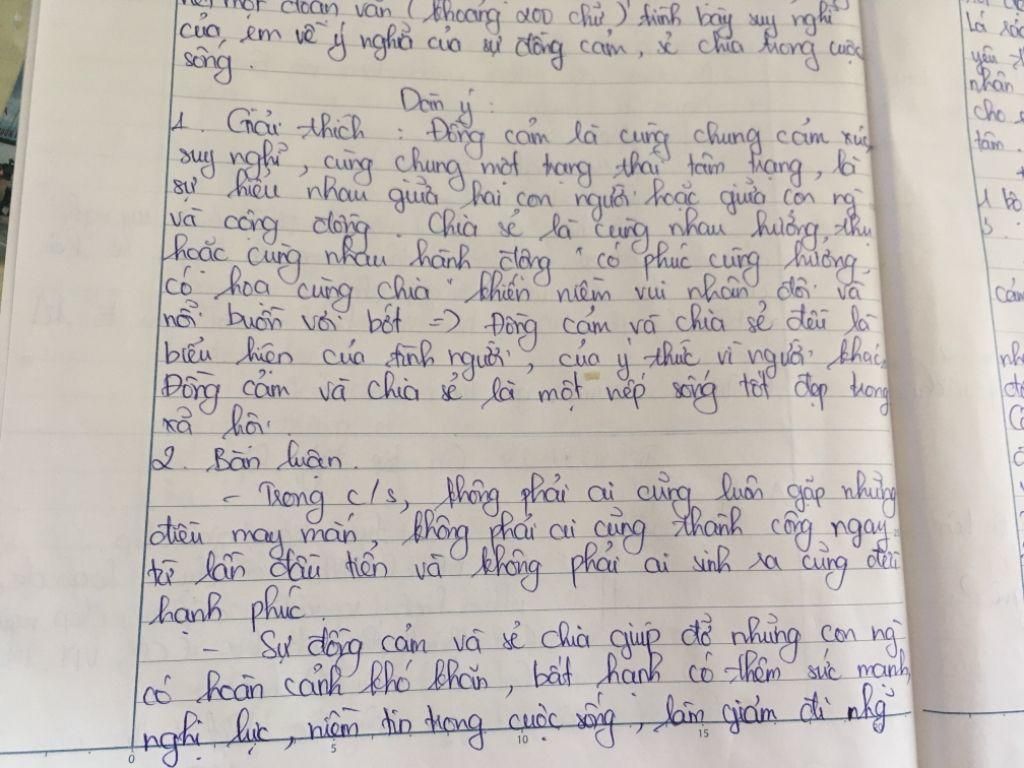 một đoạn văn (khoảng 200 chữ) trình bày suy nghĩ
của em về ý nghĩa của sự đồng cảm, sẻ chia trong cuộc
sống.
Dàn ý:
1. Giải thích: Đồng cảm là cùng chung cảm xúc,
suy nghĩ, cùng chung một trạng thái tâm trạng, là
sự hiểu nhau giữa hai con người hoặc giữa con ng
và cộng đồng. Chia sẻ là cùng nhau hưởng, thụ
hoặc cùng nhau hành động "có phúc cùng hưởng,
có họa cùng chia" khiến niềm vui nhân đôi và
nỗi buồn vơi bớt => Đồng cảm và chia sẻ đều là
biểu hiện của tình người, của ý thức vì người khác.
Đồng cảm và chia sẻ là một nếp sống tốt đẹp trong
xã hội.
2. Bàn luận.
- Trong c/s, không phải ai cũng luôn gặp những
điều may mắn, không phải ai cũng thành công ngay
từ lần đầu tiên và không phải ai sinh ra cũng đều
hạnh phúc.
- Sự đồng cảm và sẻ chia giúp đỡ những con ng
có hoàn cảnh khó khăn, bất hạnh có thêm sức mạnh,
nghị lực, niềm tin trong cuộc sống, làm giảm đi nhg
0 5 10 15
yêu
nhân
cho
tâm.
cảm